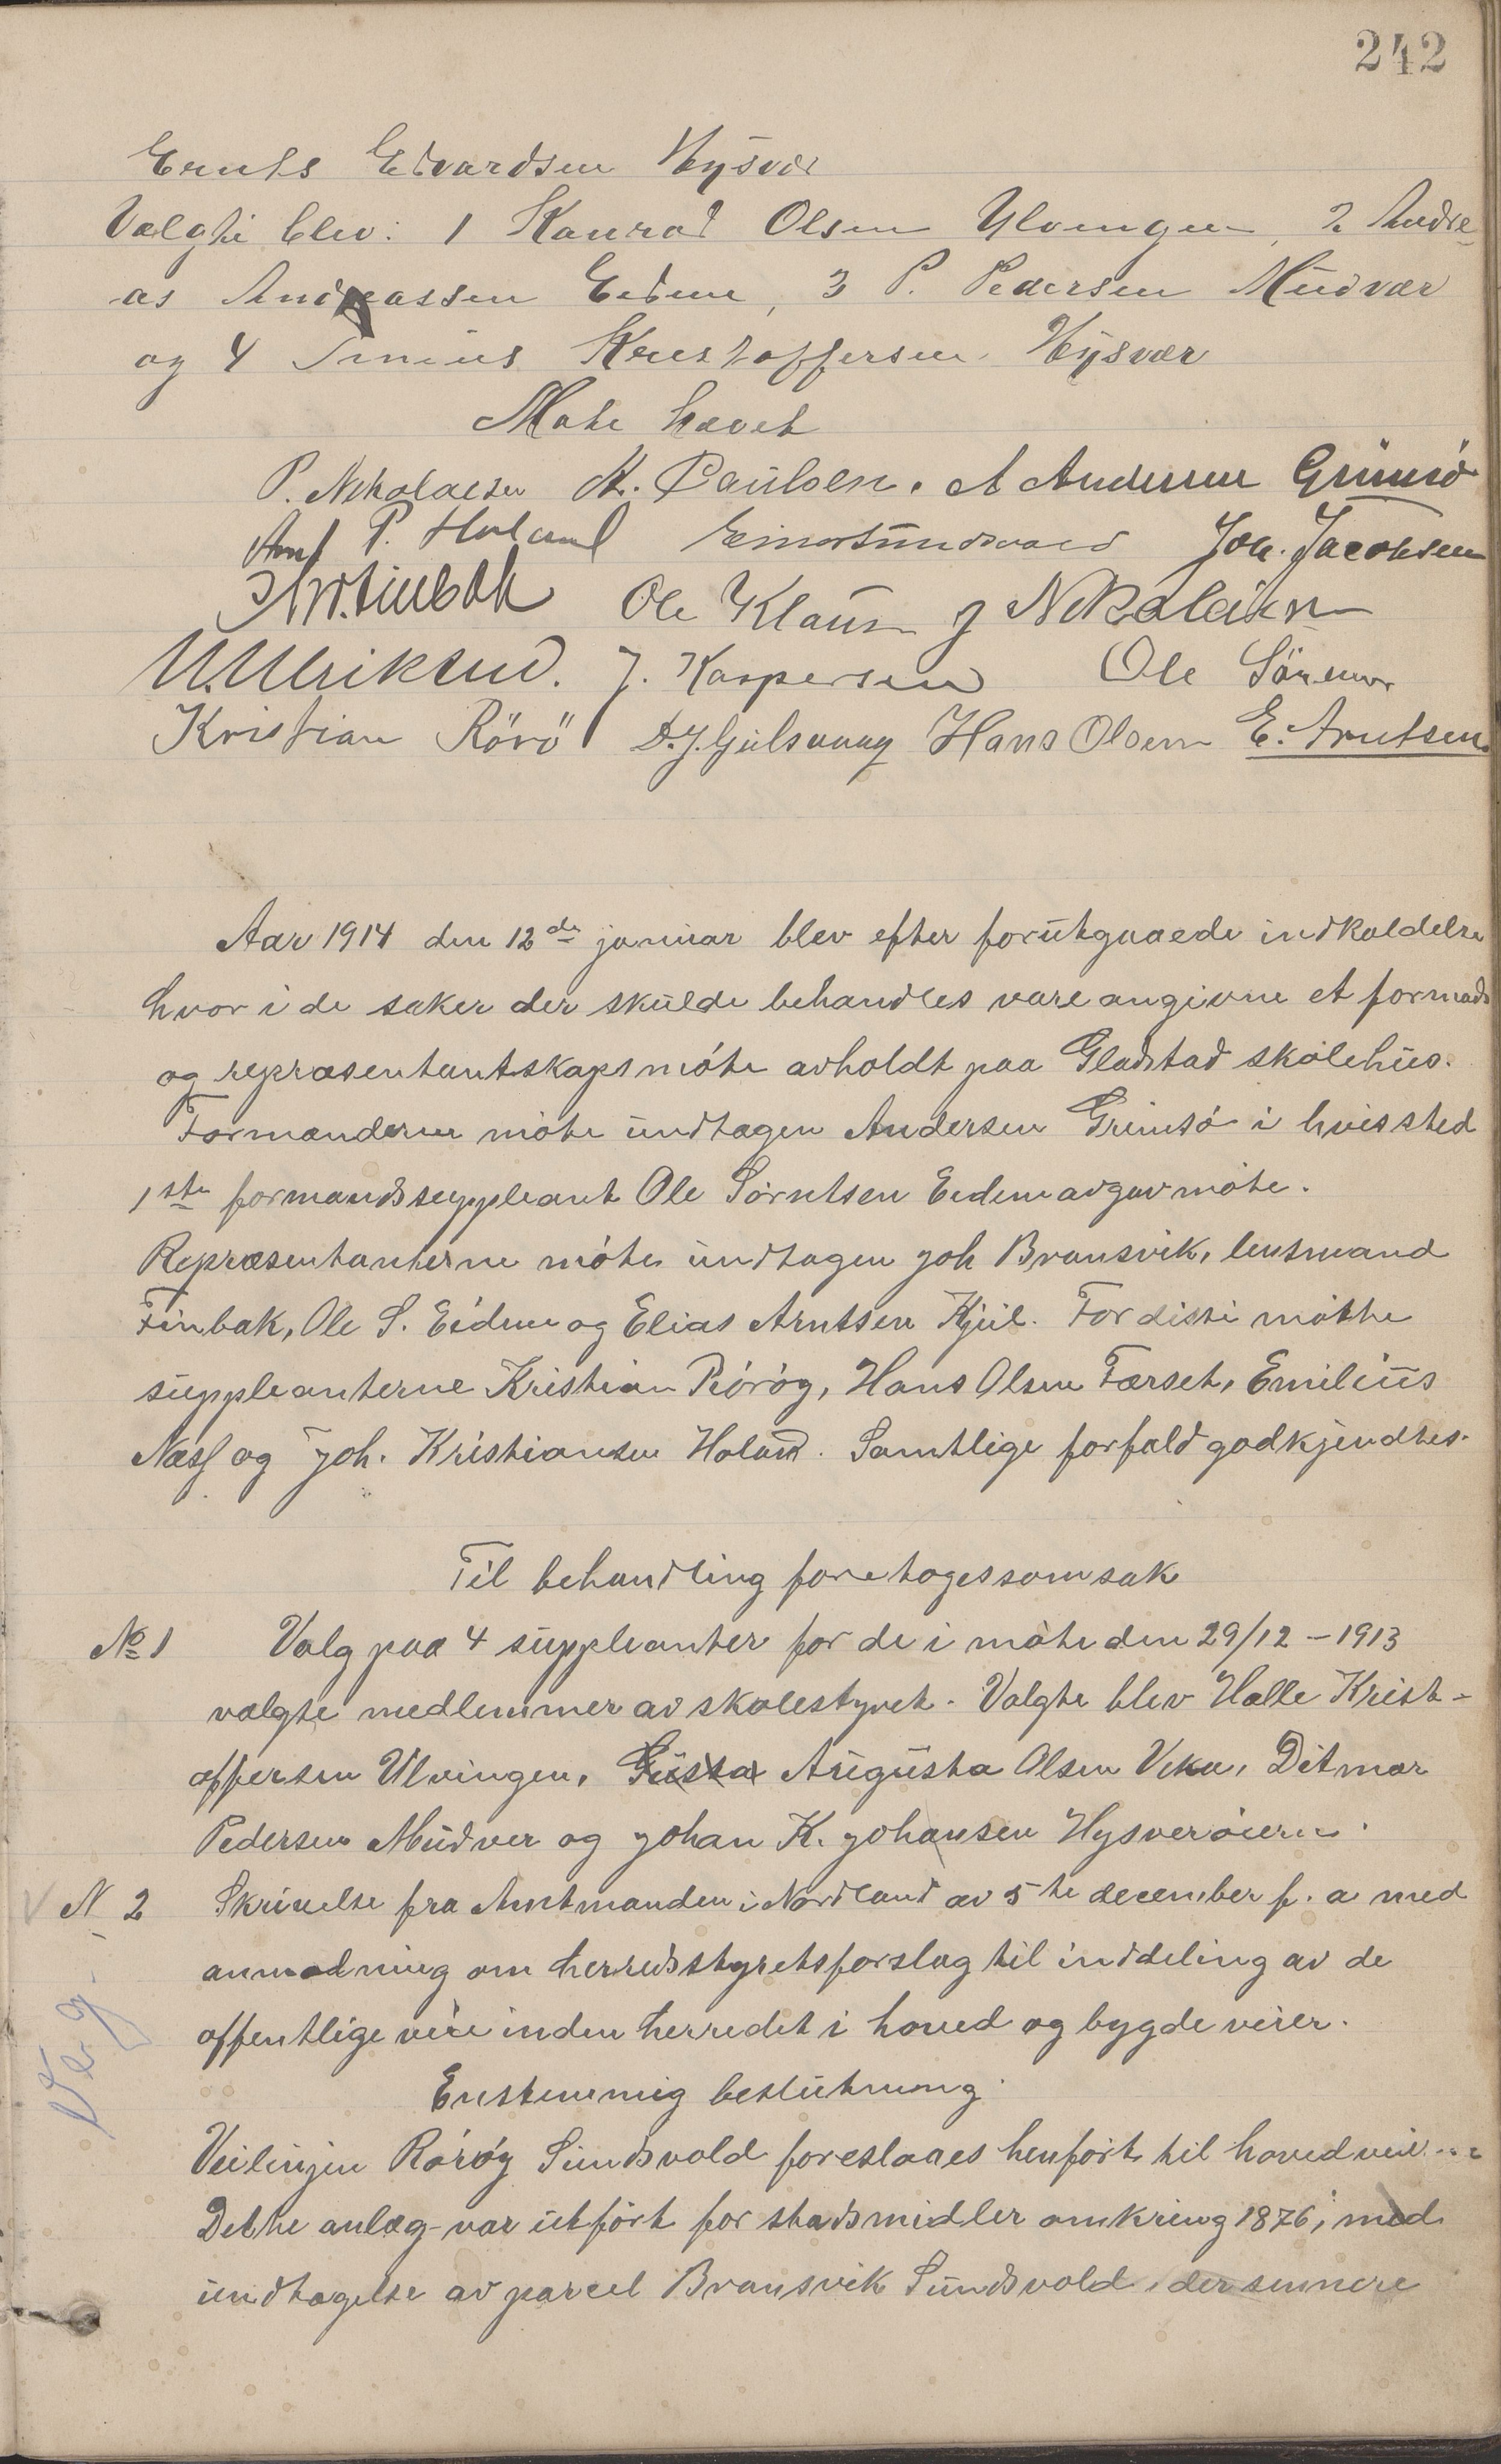 242
Ernts Edvardsen Hysvær
Valgte blev: 1 Konrad Olsen Ulvingen, 2 Andre
as Andreassen Eidem, 3 P. Pedersen Mudvær
og 4 Kristoffersen Hysvær
Møte hævet
P. Nikolaisen K. Paulsen. A Andersen Grimsö
P. Holand Einar Sundsvold Joh. Jacobsen
Ole Klausen J Nikolaisen
U. Ulriksen. J. Kaspersen Ole Sörensen
Kristian Rörö D. J. Gulsvaag Hans Olsen E. Arntsen
Aar 1914 den 12de januar blev efter forutgaaede indkaldelse
hvor i de saker der skulde behandles vare angivne et formads
og repræsentantskapsmöte avholdt paa Gladstad skolehus.
Formændene möte undtagen Andersen Grimsö i hvis sted
1ste formandssuppleant Ole Sörntsen Eidem avgav möte.
Repræsentanterne möte undtagen Joh Bransvik, lensmand
Finbak, Ole S. Eidem og Elias Arntsen Kjul. For disse mötte
suppleanterne Kristian Röröy, Hans Olsen Færset, Emilius
Næss og Joh. Kristiansen Holand. Samtlige forfald godkjendtes.
Til behandling foretoges som sak
No 1 Valg paa 4 suppleanter for de i möte den 29/12 - 1913
valgte medlemmer av skolestyret. Valgte blev Halle Krist-
offersen Ulvingen, Gusta Augusta Olsen Vika, Ditmar
Pedersen Mudver og Johan K. Johansen Hysveröiern.
N 2 Skrivelse fra Amtmanden i Nordland av 5te december f. a med
anmodning om herredsstyretsforslag til inddeling av de
offentlige veie inden herredet i hoved og bygdeveier.
Veg.
Enstemmig beslutning.
Veilinjen Röröy Sundsvold foreslaaes henfört til hovedveie
Dette anlæg var utfört for stadsmidler omkring 1876, med
undtagelse av parcel Bransvik Sundsvold, der sennere